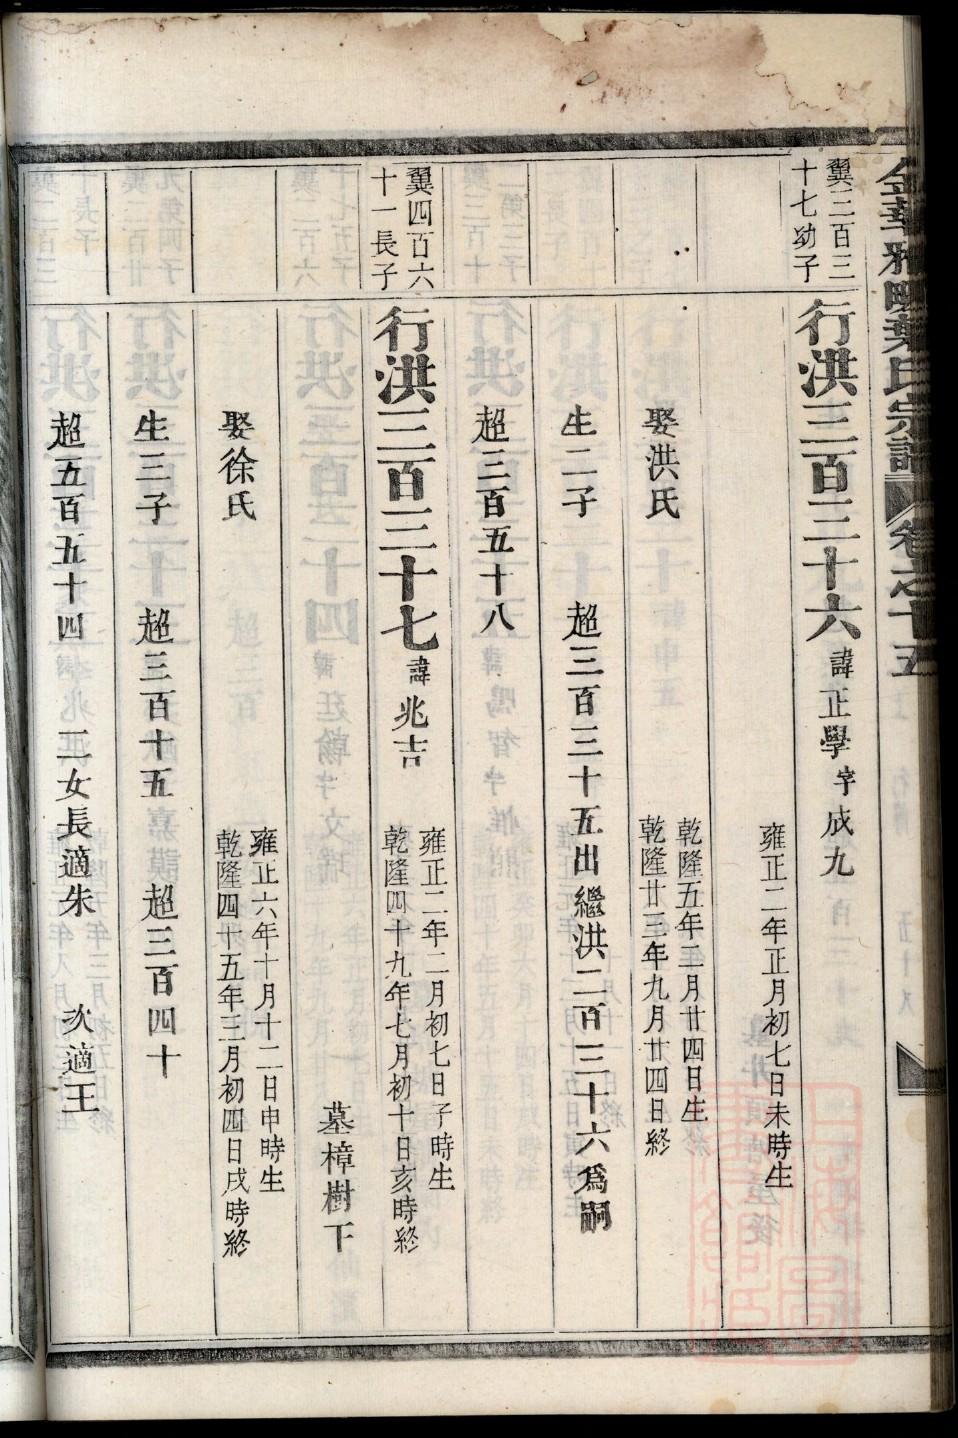 金華雅畈葉氏宗譜 卷之十五
翼三百三
十七幼子
行洪三百三十六 諱正學 字成九
雍正二年正月初七日未時生
娶洪氏
乾隆五年二月廿四日生
乾隆廿三年九月廿四日終
生二子 超三百三十五出繼洪二百三十六為嗣
超三百五十八
翼四百六
十一長子
行洪三百三十七 諱兆吉
雍正二年二月初七日子時生
乾隆四十九年七月初十日亥時終
墓樟樹下
娶徐氏
雍正六年十月十二日申時生
乾隆四十五年三月初四日戌時終
生三子 超三百十五 超三百四十
超五百五十四 二女長適朱 次適王